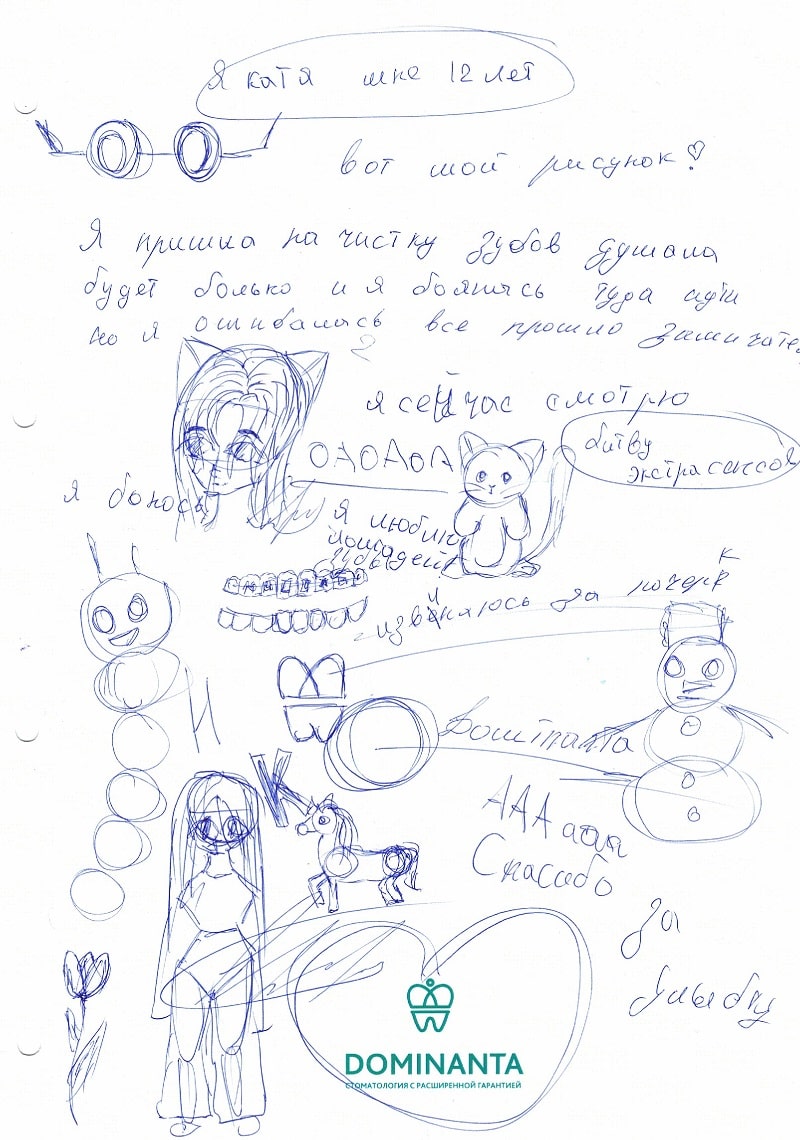 Я катя мне 12 лет
вот мой рисунок
Я пришла на чистку зубов думала
будет болько и я боялась туда идти
но я ошибалась все прошло замичате
я сейчас смотрю
битву
экстрасенсов
ОАОАОА
я боюсь
Я люблю
лошадей
зубы
к
извиняюсь за почерк
Н
К
АААааа
Спасибо
за
улыбку
DOMINANTA
СТОМАТОЛОГИЯ С РАСШИРЕННОЙ ГАРАНТИЕЙ